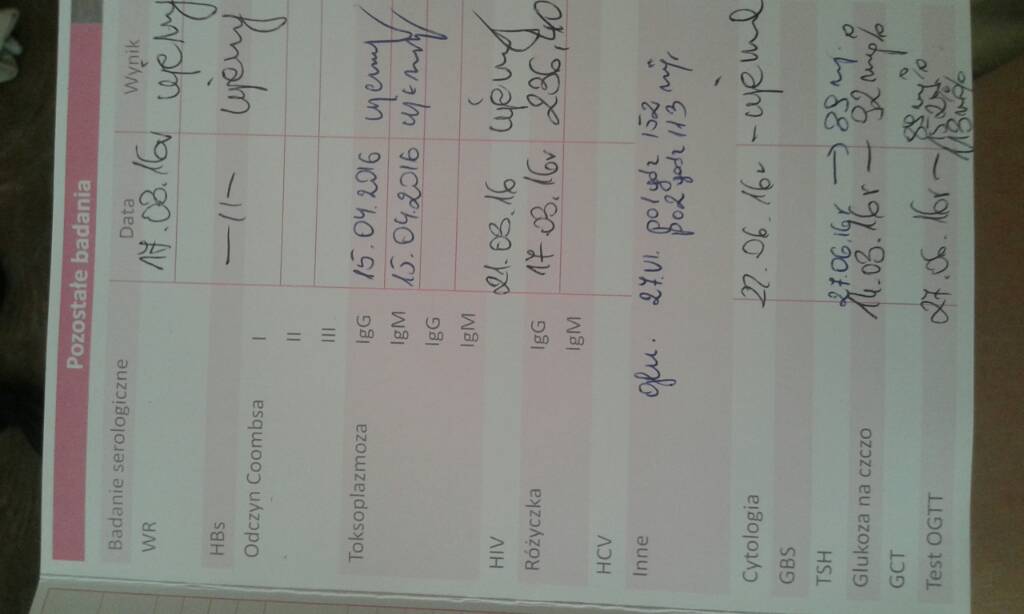 Pozostałe badania
Badanie serologiczne Data Wynik
WR 17.03.16r ujemny
HBs —11— ujemny
Odczyn Coombsa I
II
III
Toksoplazmoza IgG 15.04.2016 ujemny
IgM 15.04.2016 ujemny
IgG
IgM
HIV 21.03.16 ujemny
Różyczka IgG 17.03.16r 236,40
IgM
HCV
Inne
glu. 27.VI. po 1 godz 152
po 2 godz 113
Cytologia 22.06.16r - ujemna
GBS
TSH
27.06.16r → 88
Glukoza na czczo 14.03.16r — 92 mg%
GCT
Test OGTT 27.06.16r - 88 mg%
152
113 mg%